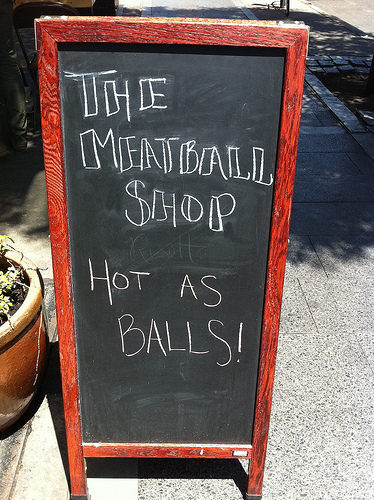 THE
MEATBALL
SHOP
HOT AS
BALLS!